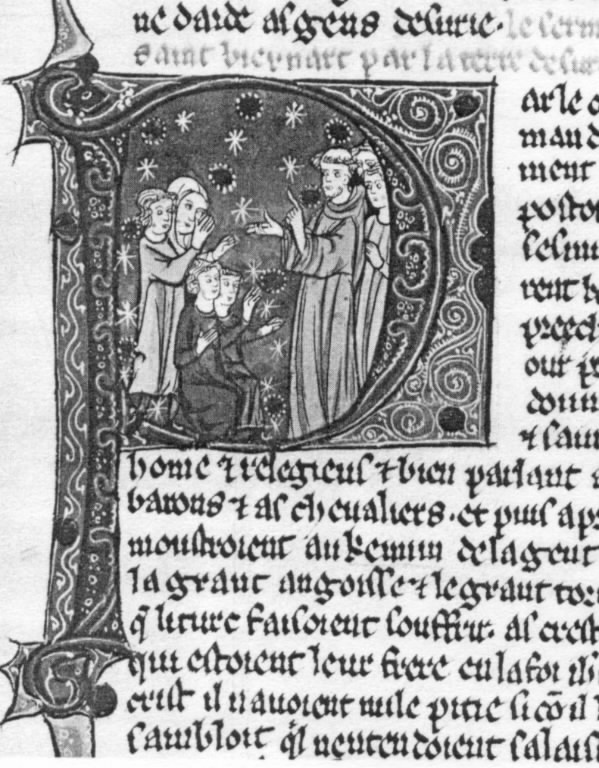 ne daide as gens desurie. le serm
saint biernart par la terre de sur
arle c
maud
ment
postol
rent b
preech
our pr
donn
⁊ sain
home ⁊ relegieus ⁊ bien parlant a
barons ⁊ as cheualiers. et puis aps
moustroient au kemun de la gent
la grant angoisse ⁊ le grant tor
q̃ li turc faisoient souffrir. as crest
qui estoient leur frere en la foi ih̃
crist il n auoient nule pitie si cõ il l
sambloit q̃l n entendoient sa lais